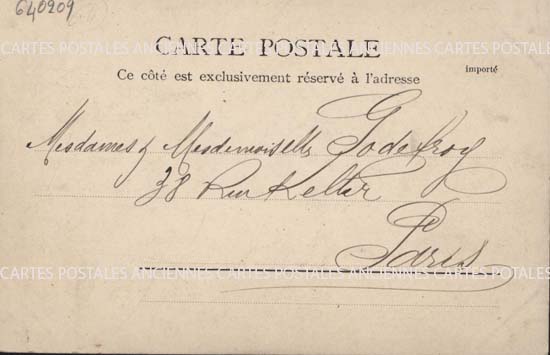 640209
CARTES POSTALES ANCIENNES CARTES POSTALES ANCIENNES CARTES POSTALES
CARTE POSTALE
Ce côté est exclusivement réservé à l'adresse
importé
Mesdames & Mesdemoiselles Godefroy
38 Rue Keller
Paris
CARTES POSTALES ANCIENNES CARTES POSTALES ANCIENNES CARTES POSTALES